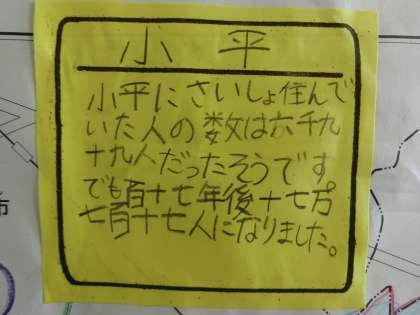 小平
小平にさいしょ住んで
いた人の数は六千九
十九人だったそうです
でも百十七年後十七万
七百十七人になりました。
市